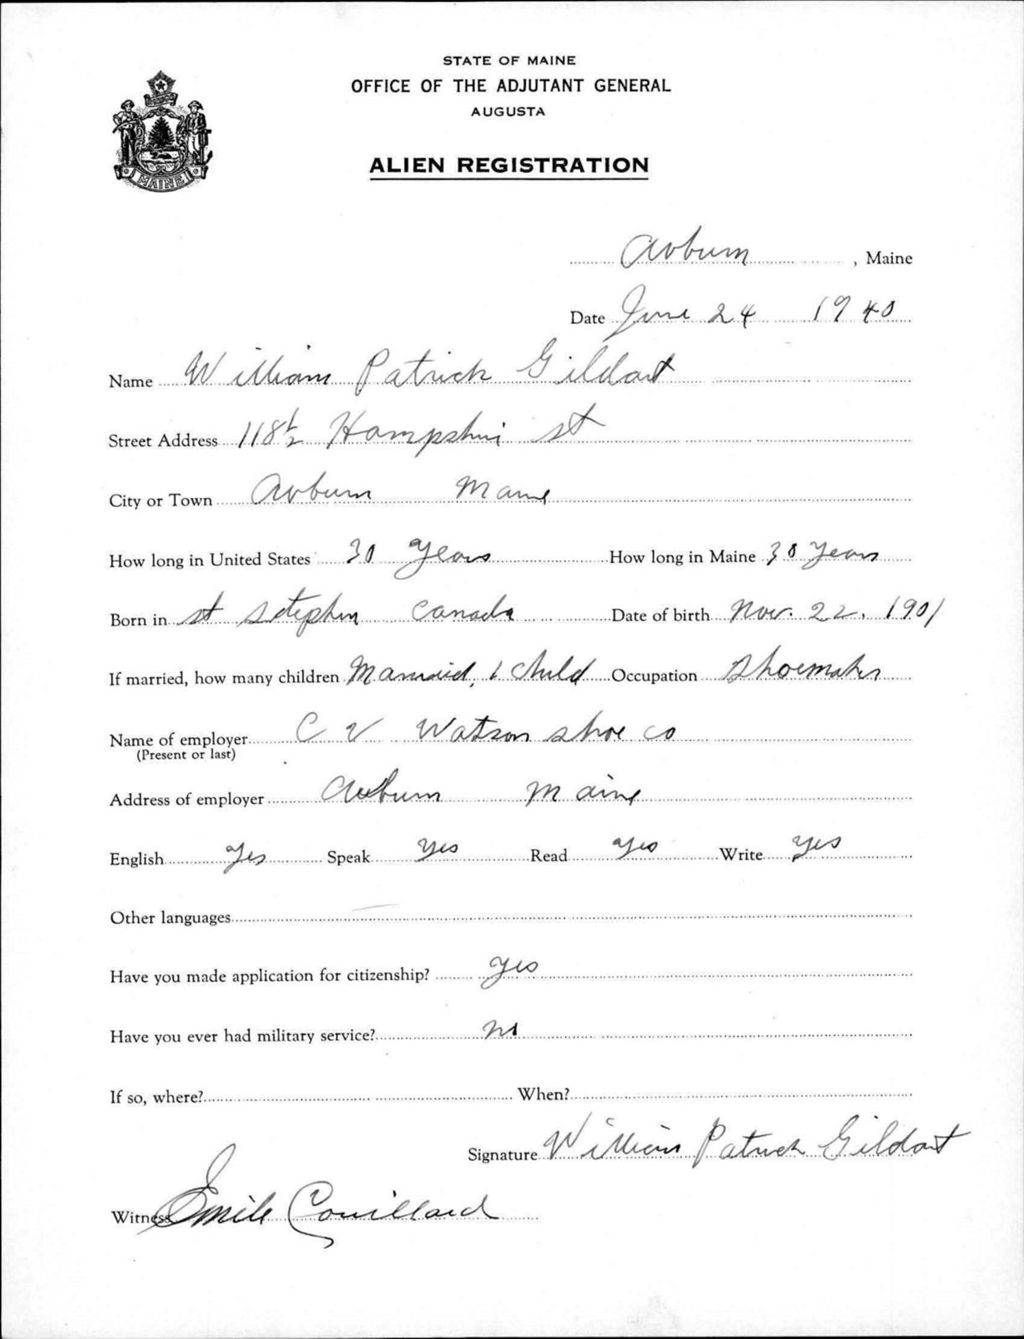 STATE OF MAINE
OFFICE OF THE ADJUTANT GENERAL
AUGUSTA
ALIEN REGISTRATION
MAINE
Auburn, Maine
Date June 24 1940
Name William Patrick Gildart
Street Address 118 1/2 Hampshire st
City or Town Auburn Maine
How long in United States 30 years How long in Maine 30 years
Born in st Stephen Canada Date of birth Nov. 22, 1901
If married, how many children Married, 1 child Occupation Shoemaker
Name of employer C V Watson shoe co
(Present or last)
Address of employer Auburn Maine
English Yes Speak Yes Read Yes Write Yes
Other languages —
Have you made application for citizenship? Yes
Have you ever had military service? no
If so, where? When?
Signature William Patrick Gildart
Witness Emile Couillard